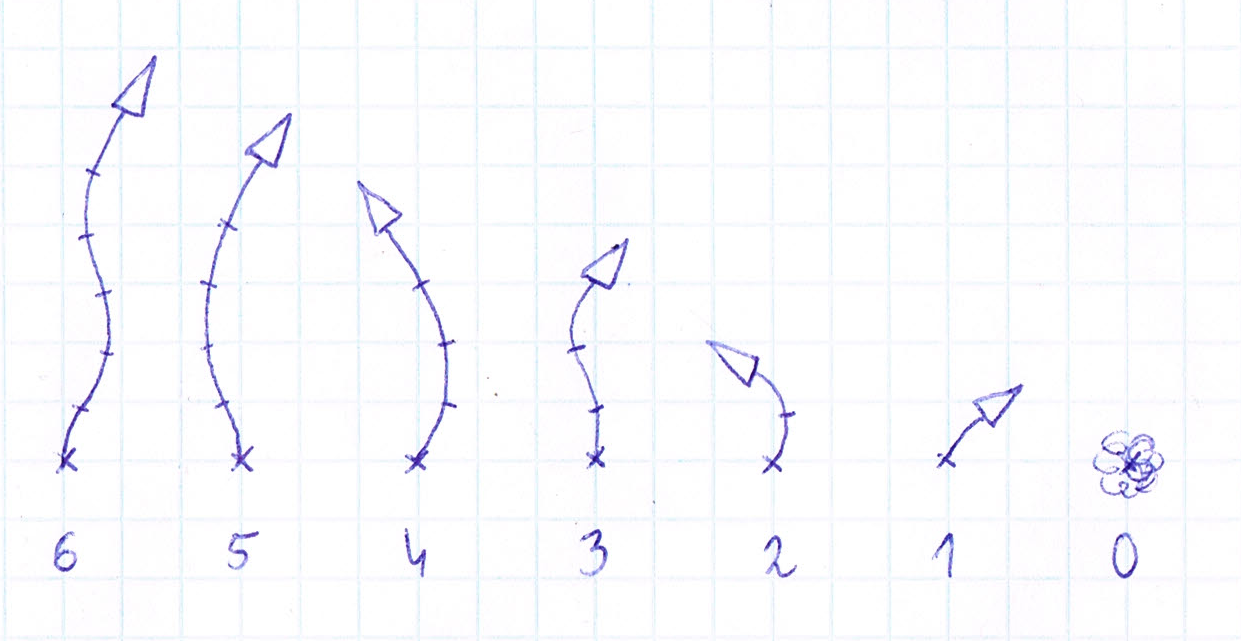 6 5 4 3 2 1 0